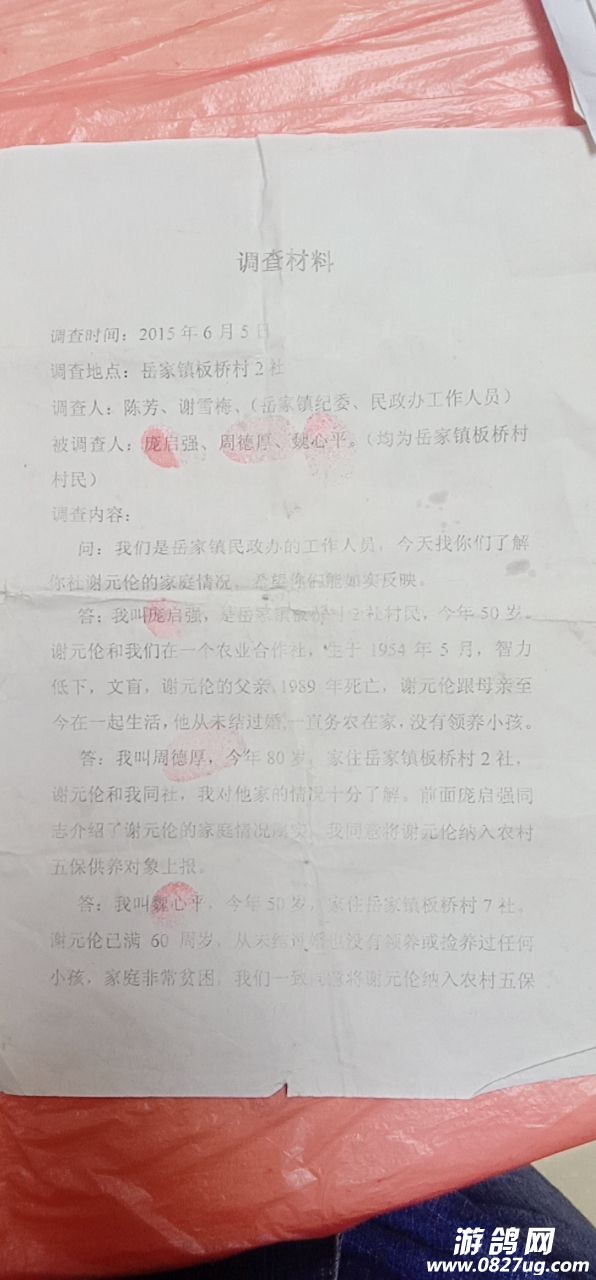 调查材料
调查时间：2015年6月5日
调查地点：岳家镇板桥村2社
调查人：陈芳、谢雪梅、（岳家镇纪委、民政办工作人员）
被调查人：庞启强、周德厚、魏心平。（均为岳家镇板桥村
村民）
调查内容：
问：我们是岳家镇民政办的工作人员，今天找你们了解
你社谢元伦的家庭情况，希望你们能如实反映。
答：我叫庞启强，是岳家镇板桥村2社村民，今年50岁。
谢元伦和我们在一个农业合作社，生于1954年5月，智力
低下，文盲，谢元伦的父亲1989年死亡，谢元伦跟母亲至
今在一起生活，他从未结过婚，一直务农在家，没有领养小孩。
答：我叫周德厚，今年80岁，家住岳家镇板桥村2社，
谢元伦和我同社，我对他家的情况十分了解。前面庞启强同
志介绍了谢元伦的家庭情况属实，我同意将谢元伦纳入农村
五保供养对象上报。
答：我叫魏心平，今年50岁，家住岳家镇板桥村7社。
谢元伦已满60周岁，从未结过婚也没有领养或捡养过任何
小孩，家庭非常贫困，我们一致同意将谢元伦纳入农村五保
游鸽网
www.0827ug.com